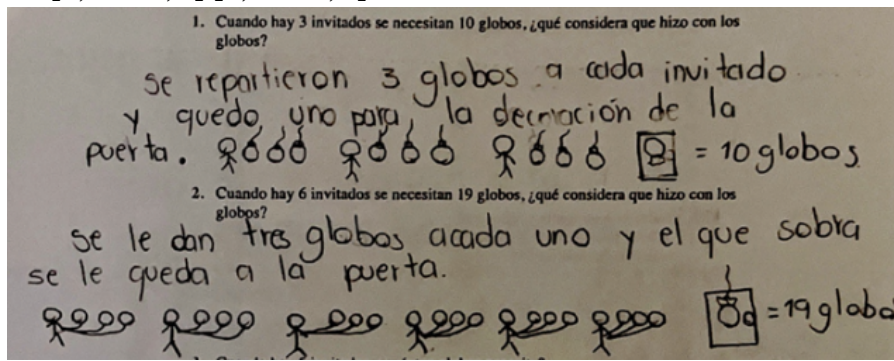 1. Cuando hay 3 invitados se necesitan 10 globos, ¿qué considera que hizo con los
globos?
se repartieron 3 globos a cada invitado
y quedo uno para la decración de la
puerta. = 10 globos
2. Cuando hay 6 invitados se necesitan 19 globos, ¿qué considera que hizo con los
globos?
se le dan tres globos acada uno y el que sobra
se le queda a la puerta.
= 19 globo